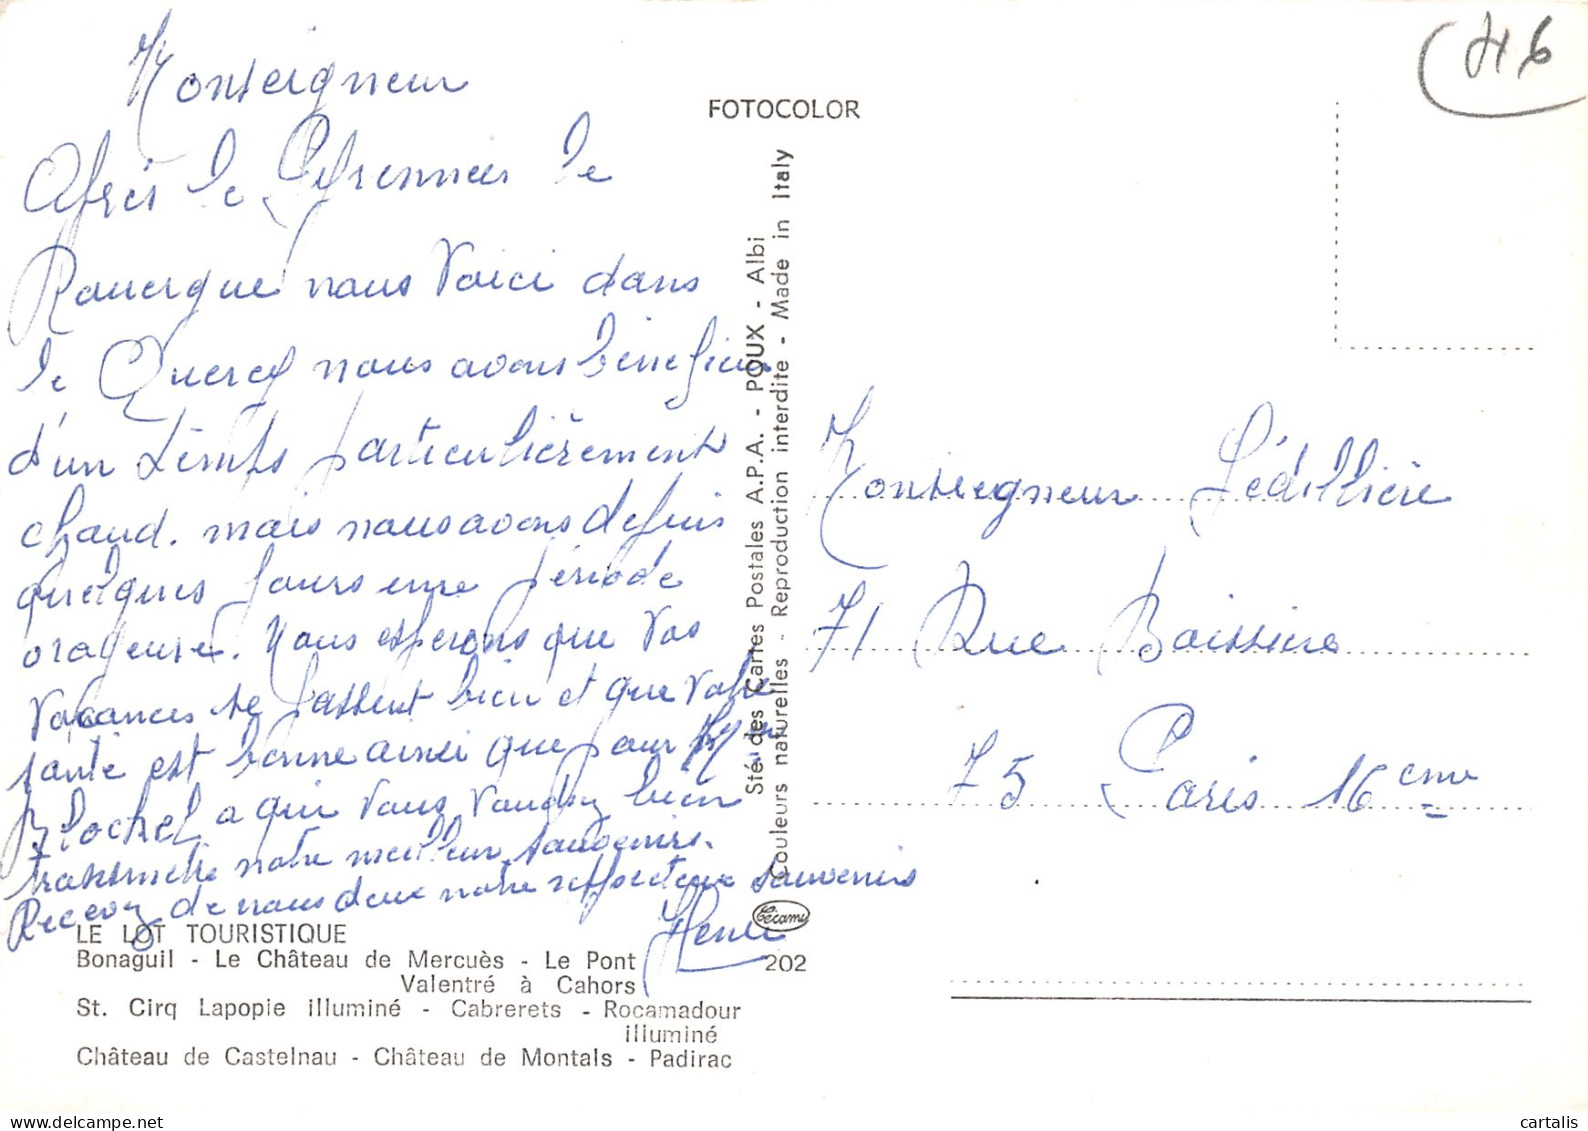 Monseigneur
Après le Pyrennées le
Rouergue nous voici dans
le Quercy nous avons bénéficier
d'un temps particulièrement
chaud. mais nous avons depuis
quelques jours une période
orageuse. Nous esperons que vos
vacances se passent bien et que votre
santé est bonne ainsi que pour Mgr
Blochel a qui vous voudrez bien
transmettre notre meilleur souvenirs.
Recevez de nous deux notre respectueux souvenirs
Henri
LE LOT TOURISTIQUE
Bonaguil - Le Château de Mercuès - Le Pont
Valentré à Cahors
St. Cirq Lapopie illuminé - Cabrerets - Rocamadour
illuminé
Château de Castelnau - Château de Montals - Padirac
FOTOCOLOR
Sté. des Cartes Postales A.P.A. - POUX - Albi
Couleurs naturelles - Reproduction interdite - Made in Italy
Cecami
202
46
Monseigneur Lédillière
71 Rue Boissiere
75 Paris 16eme
cartalis
www.delcampe.net